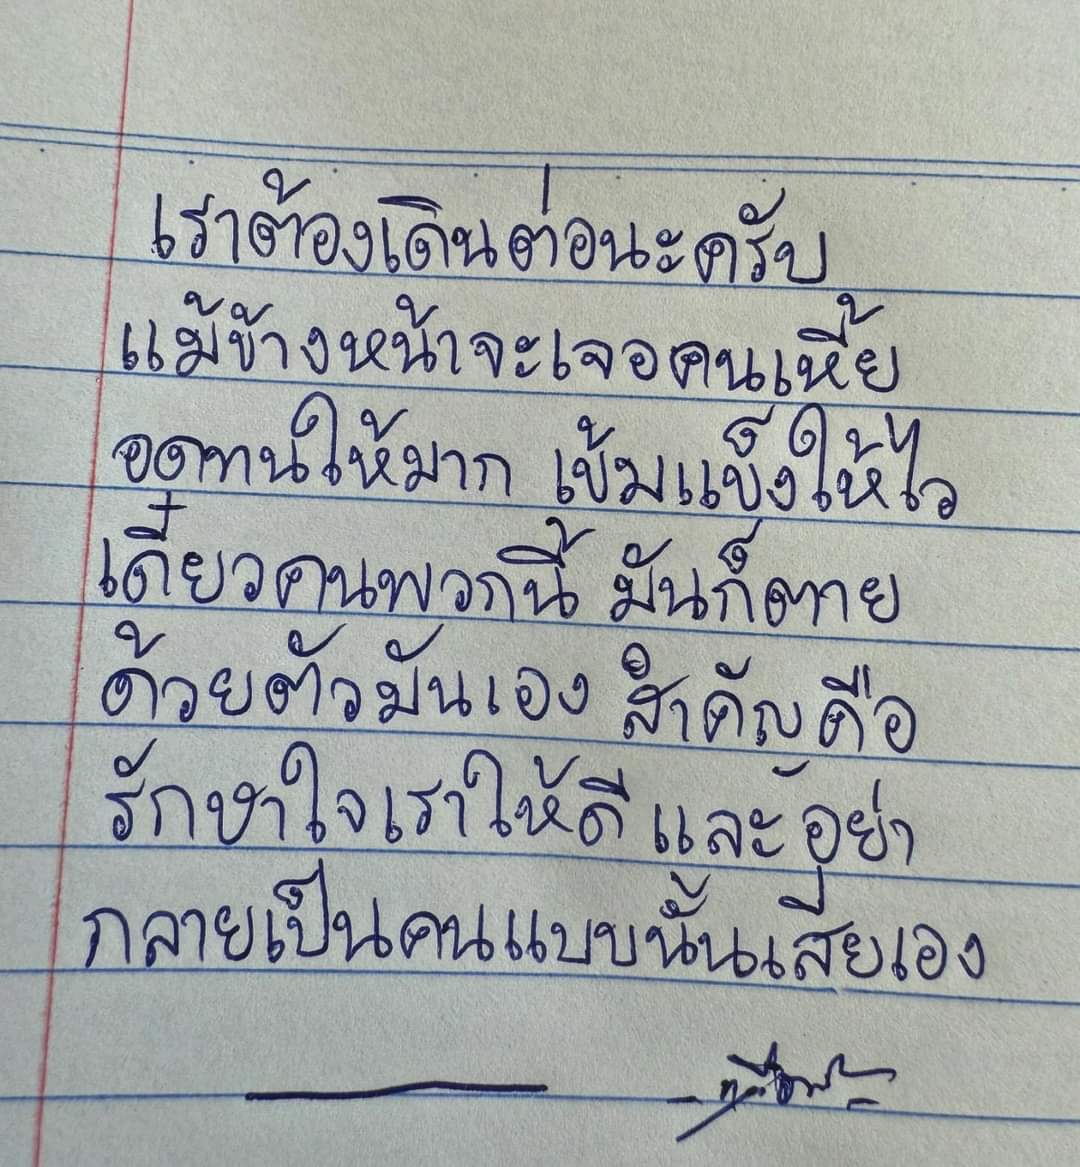 เราต้องเดินต่อนะครับ
แม้ข้างหน้าจะเจอคนเหี้ย
อดทนให้มาก เข้มแข็งให้ไว
เดี๋ยวคนพวกนี้ มันก็ตาย
ด้วยตัวมันเอง สำคัญคือ
รักษาใจเราให้ดี และอย่า
กลายเป็นคนแบบนั้นเสียเอง